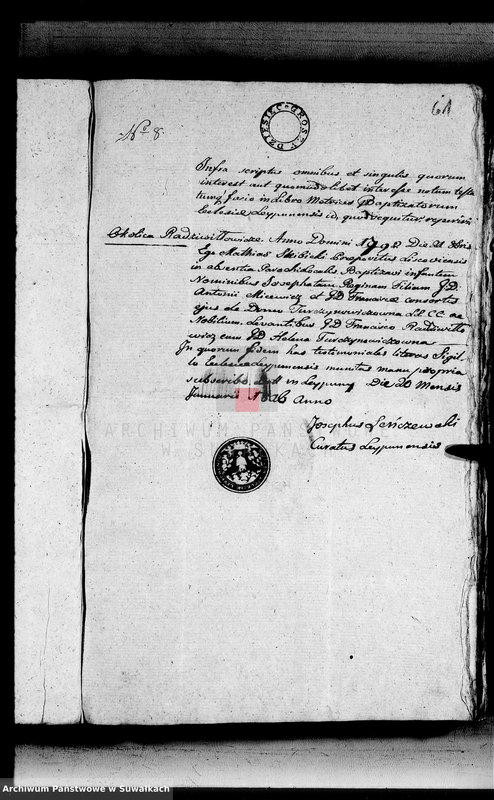 61
DZIESIĘĆ GROSZY
No 8
Infra scriptus omnibus et singulis quorum
interest aut quomodolibet interesse notum testa
tumq facio in Libro Metrices Baptizatorum
Ecclesiæ Leypunensis id, quod sequitur reperiri
Okolica Radziwiłłowicze Anno Domini 1798 Die
Ego Mathias Skibicki Præpositus Liscoviensis
in absentia Parochi Localis Baptizavi infantem
Nominibus Josephatum, Reginam Filium GD
Antonii Micewicz et GD Francisca consortis
ejus de Domo Turczynowiczowna LL CC ac
Nobilium, Levantibus GD Francisco Radziwiłło
wicz cum GD Helena Turczynowiczowna
In quorum fidem has testimoniales literas Sigil
lo Ecclesiæ Leypunensis munitas manu propria
subscribo. Datt in Leypuny Die 20 Mensis
Januarii 1826 Anno
Josephus
Curatus Leypunensis
ARCHIWUM PAŃSTWOWE
W SUWAŁKACH
Archiwum Państwowe w Suwałkach